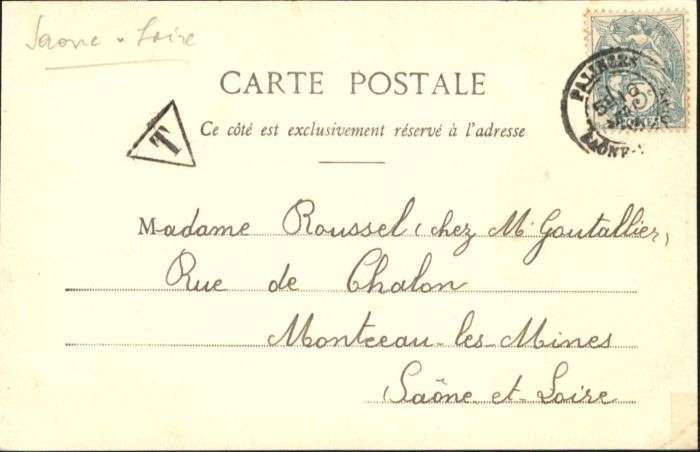 Saone-Loire
CARTE POSTALE
T
Ce côté est exclusivement réservé à l'adresse
Madame Roussel (chez M. Goutallier)
Rue de Chalon
Montceau-les-Mines
Saône et Loire